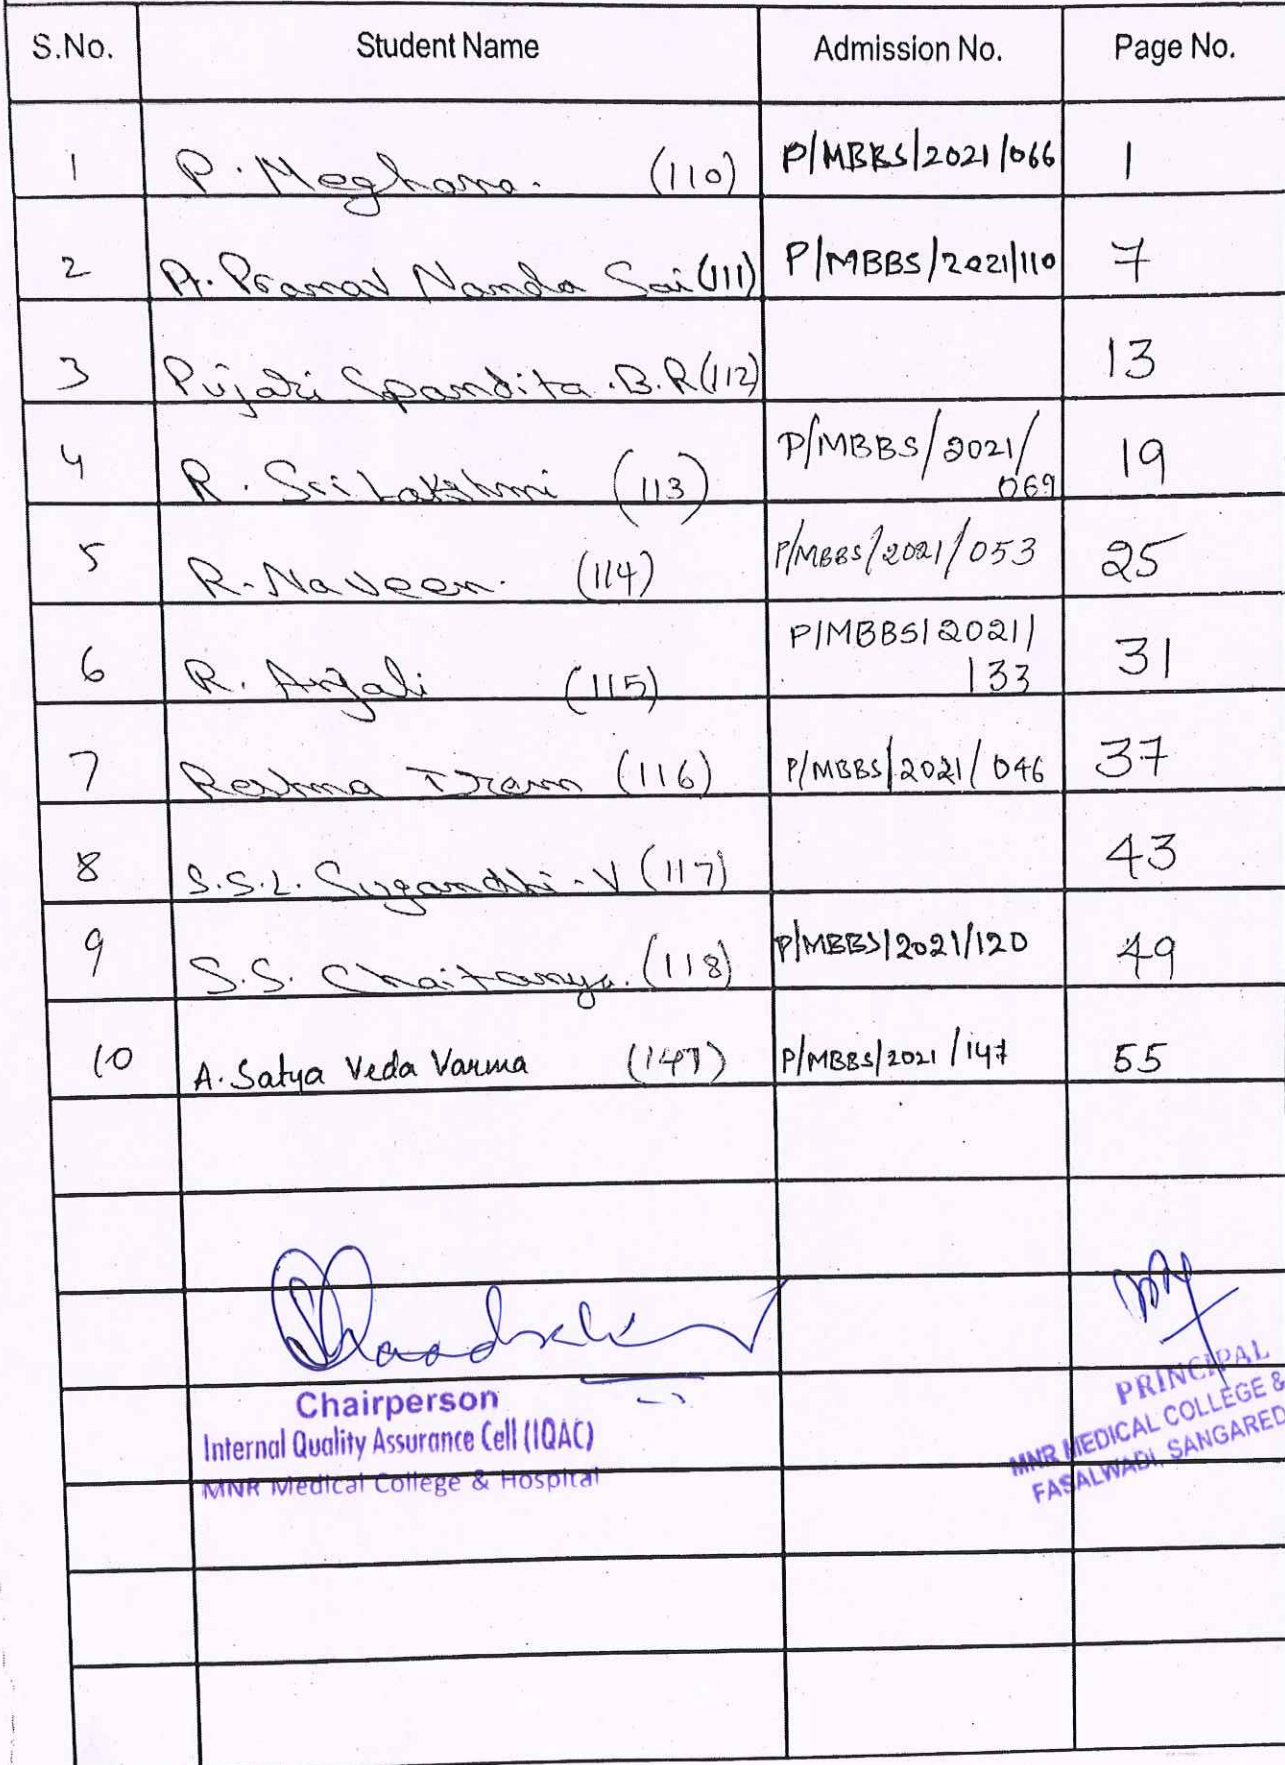 S.No. Student Name Admission No. Page No.
1 P. Meghana. (110) P/MBBS/2021/066 1
2 P. Pranav Nanda Sai (111) P/MBBS/2021/110 7
3 Pujari Spandita .B.R (112) 13
4 R. Sri Lakshmi (113) P/MBBS/2021/
069 19
5 R. Naveen. (114) P/MBBS/2021/053 25
6 R. Anjali (115) P/MBBS/2021/
133 31
7 Reshma (116) P/MBBS/2021/046 37
8 S.S.L. Sugandhi - V (117) 43
9 S.S. Chaitanya. (118) P/MBBS/2021/120 49
10 A. Satya Veda Varma (147) P/MBBS/2021/147 55
Chairperson
Internal Quality Assurance Cell (IQAC)
MNR Medical College & Hospital
PRINCIPAL
MNR MEDICAL COLLEGE &
FASALWADI, SANGARED